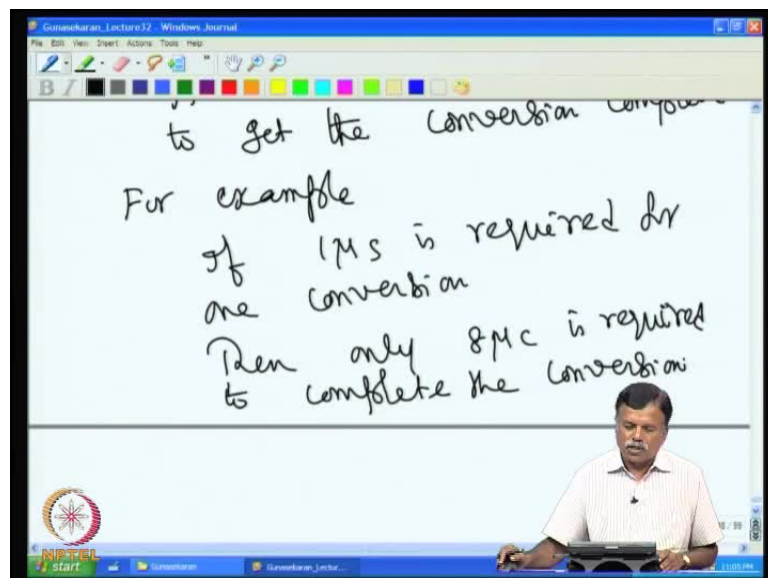 Gunasekaran_Lecture32 - Windows Journal
File Edit View Insert Actions Tools Help
B I
to get the conversion
For example
If 1μs is required for
one conversion
Then only 8μc is required
to complete the conversion
NPTEL
start Gunasekaran Gunasekaran_Lectur... 11:05 PM